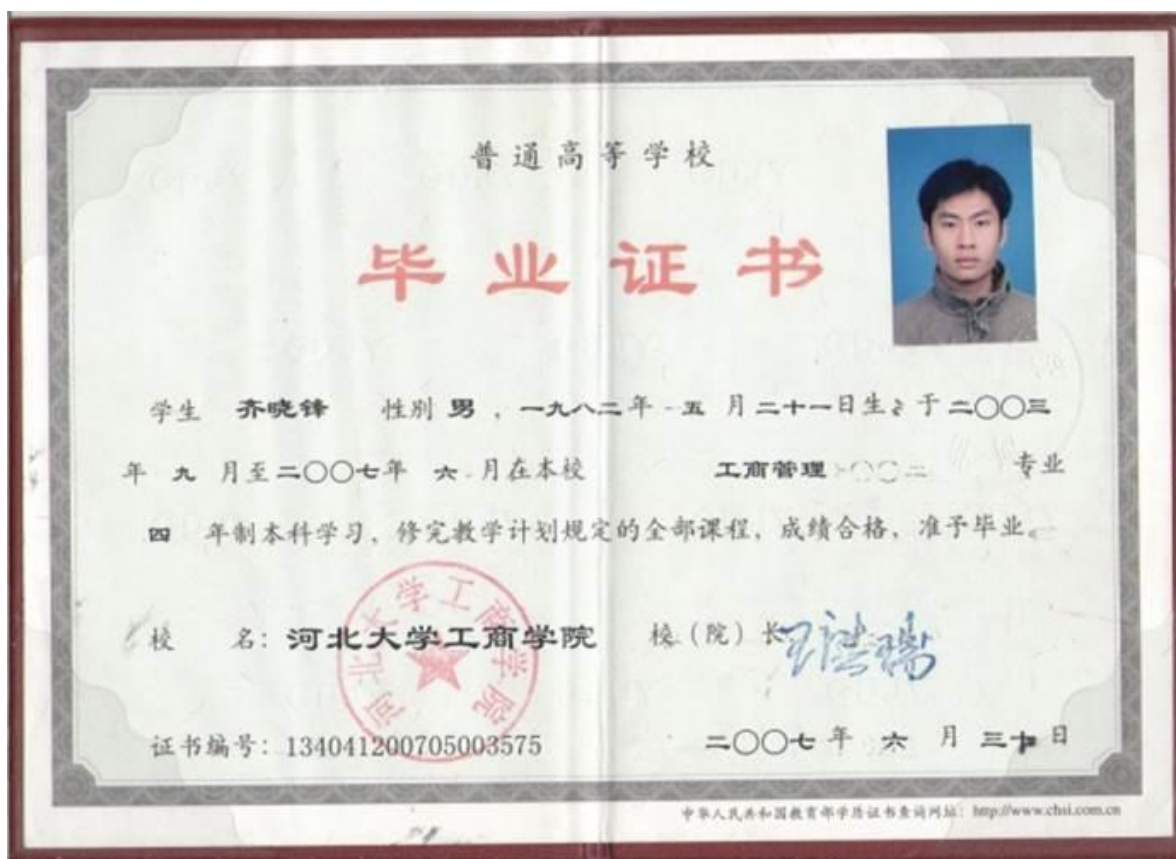 普通高等学校
毕业证书
学生 齐晓锋 性别 男 ，一九八二年 五 月二十一日生 于二〇〇三
年 九 月至二〇〇七年 六 月在本校 工商管理 专业
四 年制本科学习，修完教学计划规定的全部课程，成绩合格，准予毕业。
校 名：河北大学工商学院 校（院）长
河北大学工商学院
证书编号：134041200705003575 二〇〇七年 六 月 三十 日
中华人民共和国教育部学历证书查询网址：http://www.chsi.com.cn